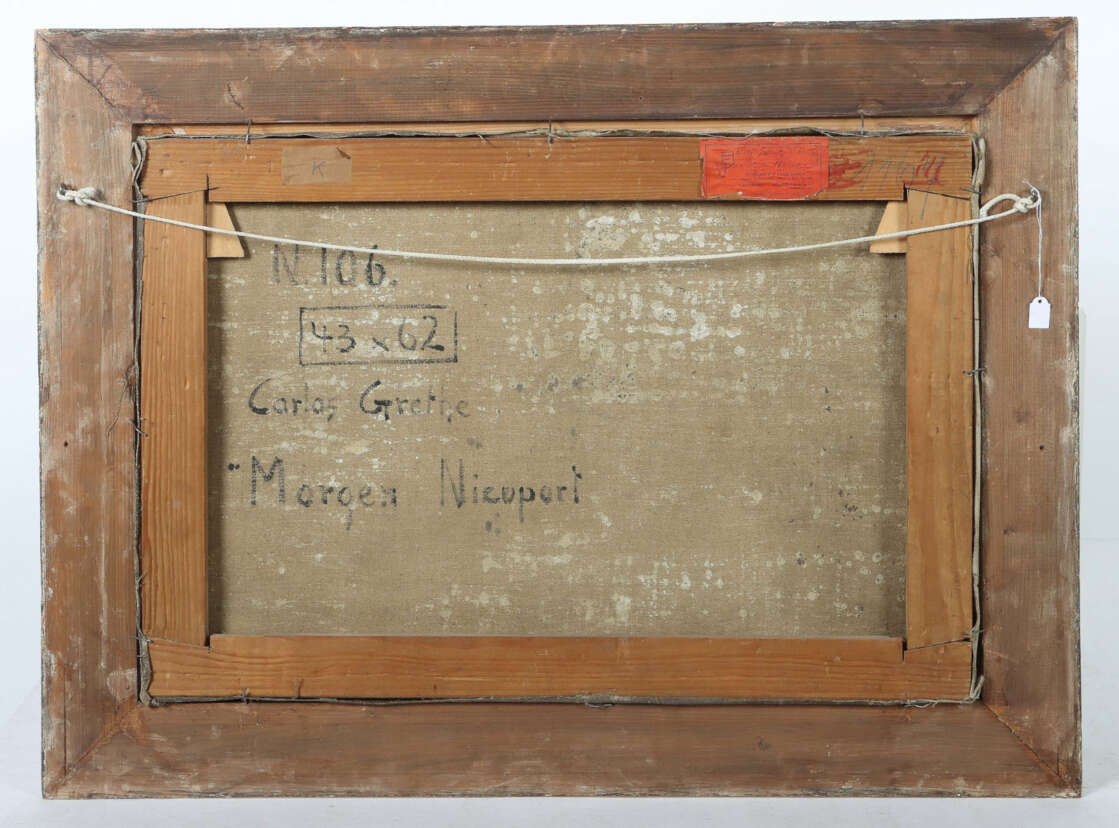 K
N. 106.
43 x 62
Carlos Grethe
"Morgen Nieuport